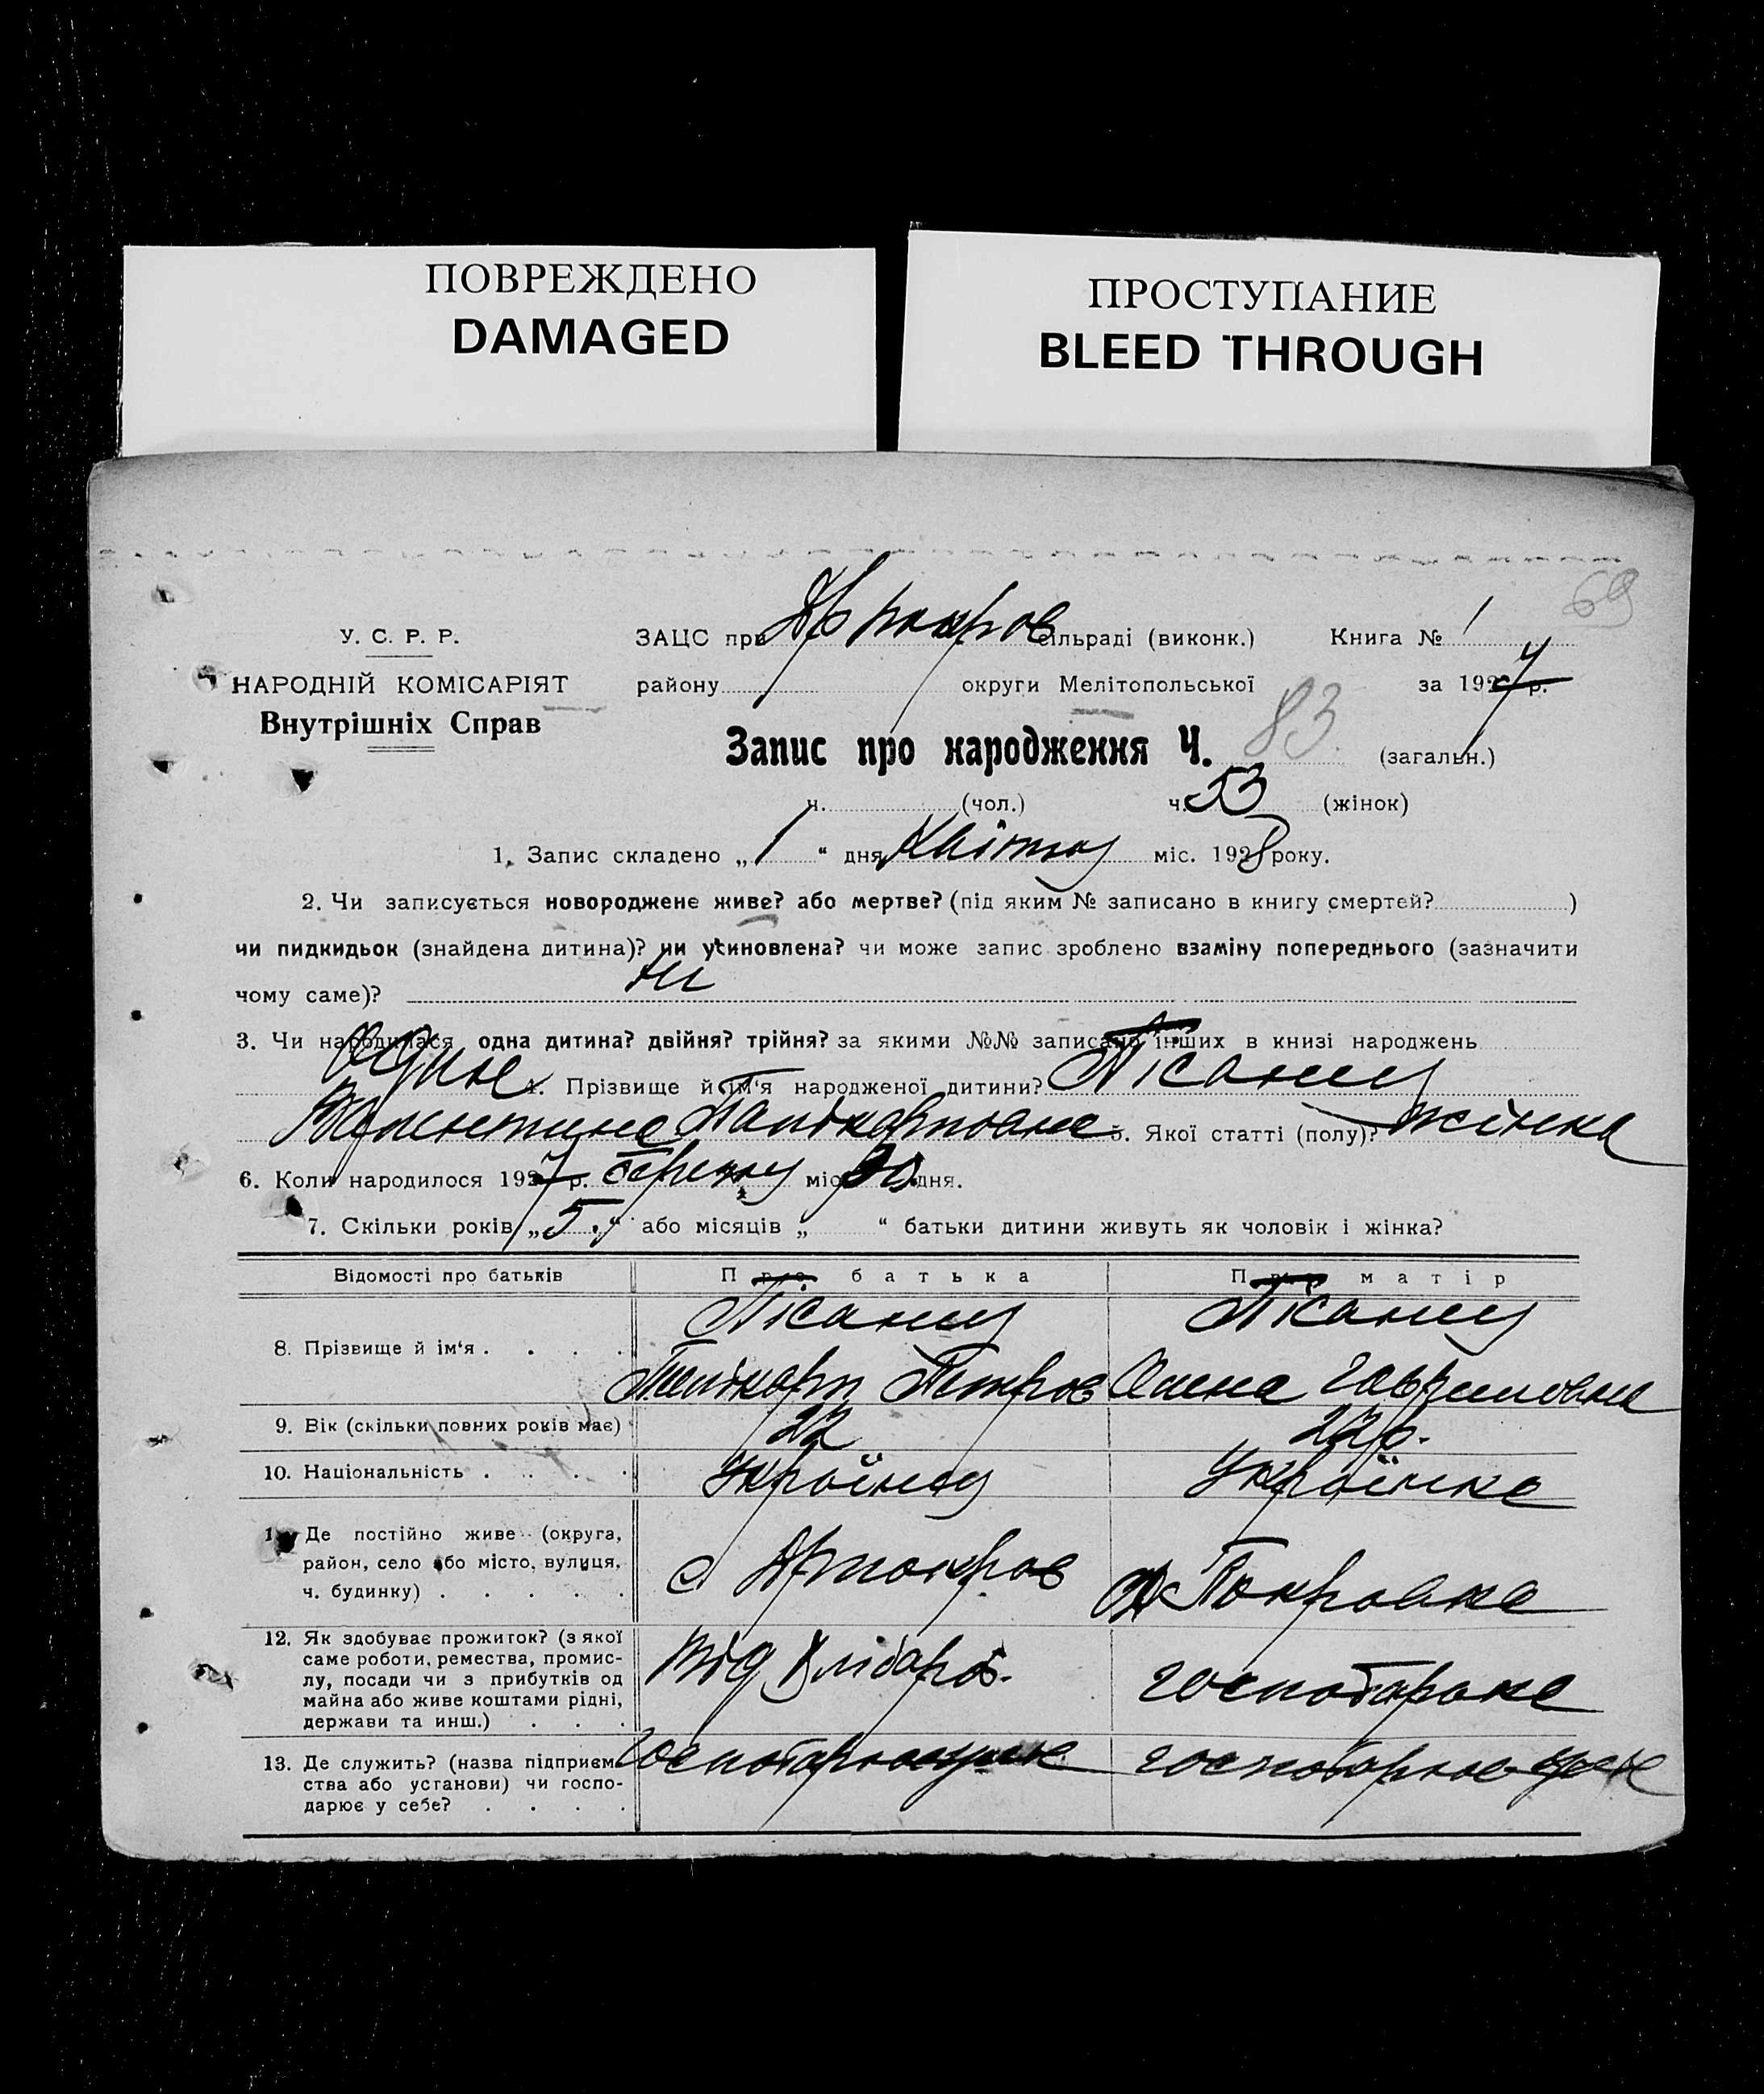 ПОВРЕЖДЕНО
DAMAGED
ПРОСТУПАНИЕ
BLEED THROUGH
69
У. С. Р. Р.
НАРОДНІЙ КОМІСАРІЯТ
Внутрішніх Справ
ЗАЦС при сільраді (виконк.) Книга № 1
району округи Мелітопольської за 192 р.
Запис про народження Ч. 83 (загальн.)
ч. (чол.) ч. 53 (жінок)
1. Запис складено „ 1 “ дня Квітня міс. 1928 року.
2. Чи записується новороджене живе? або мертве? (під яким № записано в книгу смертей? )
чи пидкидьок (знайдена дитина)? чи усиновлена? чи може запис зроблено взаміну попереднього (зазначити
чому саме)? ні
3. Чи народилася одна дитина? двійня? трійня? за якими №№ записано інших в книзі народжень
Одна 4. Прізвище й ім'я народженої дитини? Пісанец
Валентина Полікарповна 5. Якої статті (полу)? жінка
6. Коли народилося 1927 р. березня міс. 30 дня.
7. Скільки років „ 5 “ або місяців „ “ батьки дитини живуть як чоловік і жінка?
Відомості про батьків
Про батька
Про матір
8. Прізвище й ім'я . . . .
Пісанец
Полікарп Петров
Пісанец
Олена Гавриловна
9. Вік (скільки повних років має)
22
22 р.
10. Національність . . . .
Українец
Українка
11. Де постійно живе (округа,
район, село або місто, вулиця,
ч. будинку) . . . . .
с
Покровка
12. Як здобуває прожиток? (з якої
саме роботи, ремества, промис-
лу, посади чи з прибутків од
майна або живе коштами рідні,
держави та инш.) . . .
Від хлібороб.
13. Де служить? (назва підприєм-
ства або установи) чи госпо-
дарює у себе? . . . .